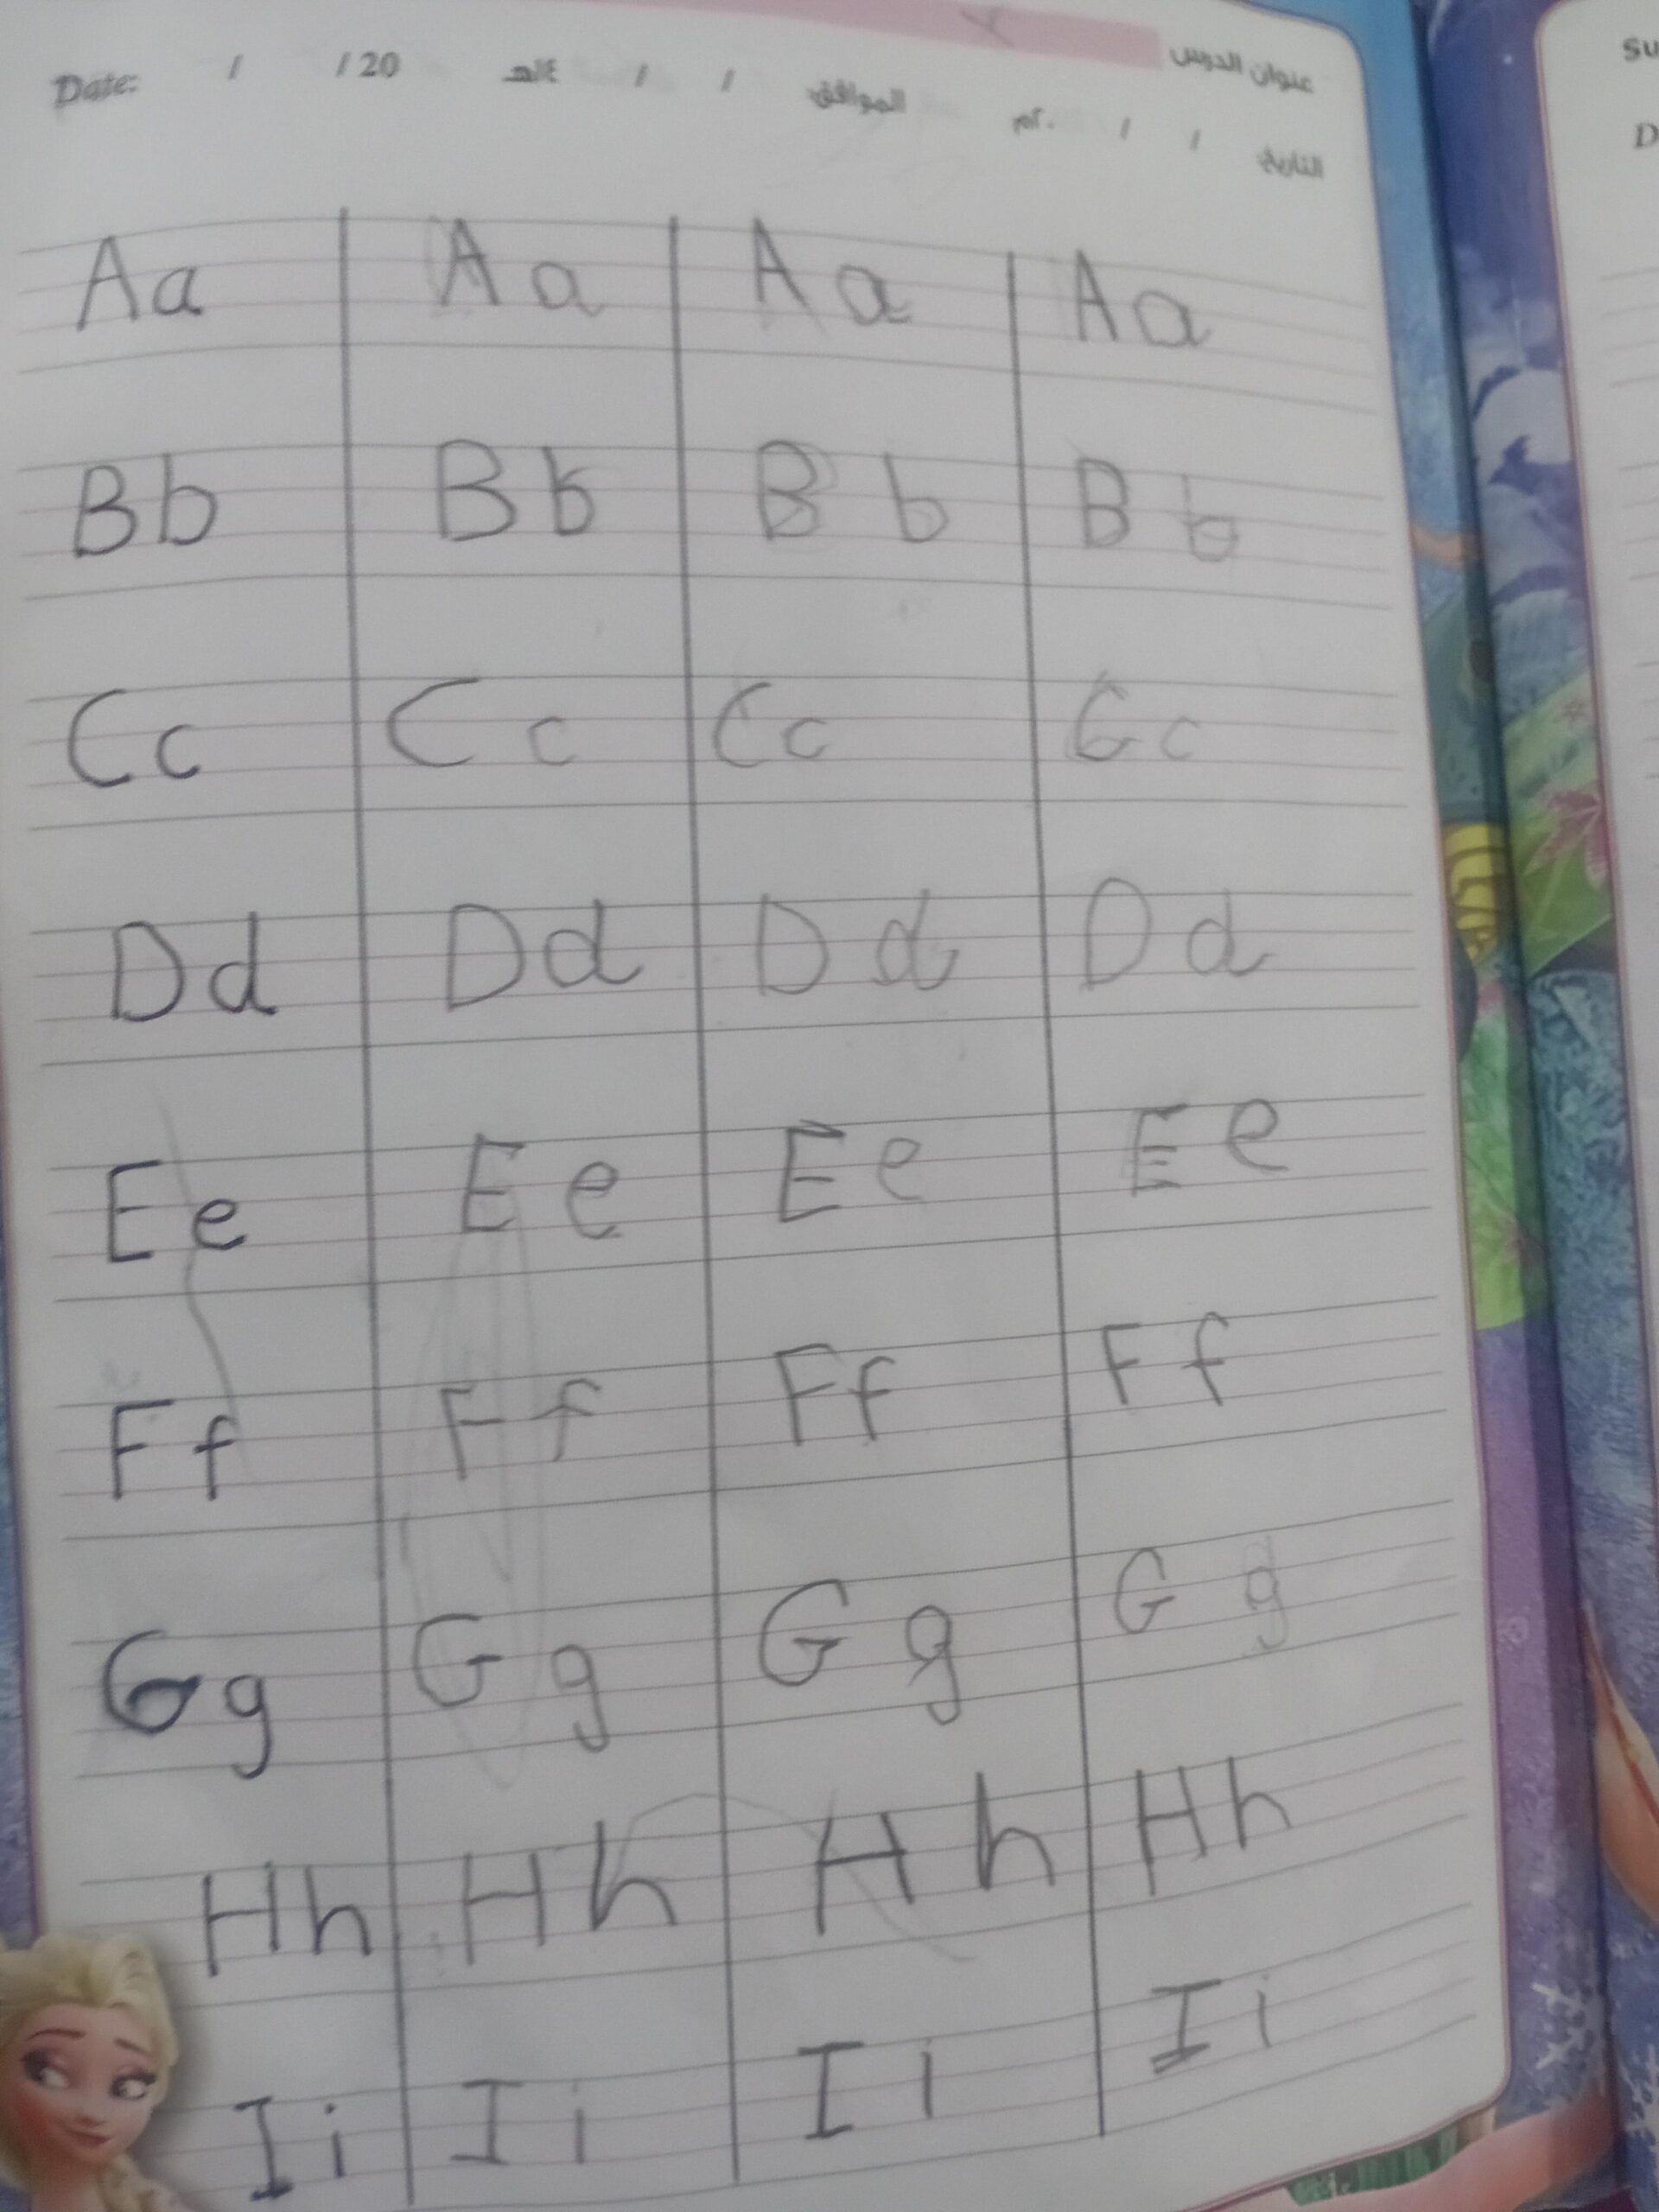 عنوان الدرس
Date: / / 20 الموافق: / / ١٤هـ التاريخ / / ٢٠م
Aa Aa Aa Aa
Bb Bb Bb Bb
Cc Cc Cc Gc
Dd Dd Dd Dd
Ee Ee Ee Ee
Ff Ff Ff Ff
Gg Gg Gg Gg
Hh Hh Hh Hh
Ii Ii Ii Ii
Su
D